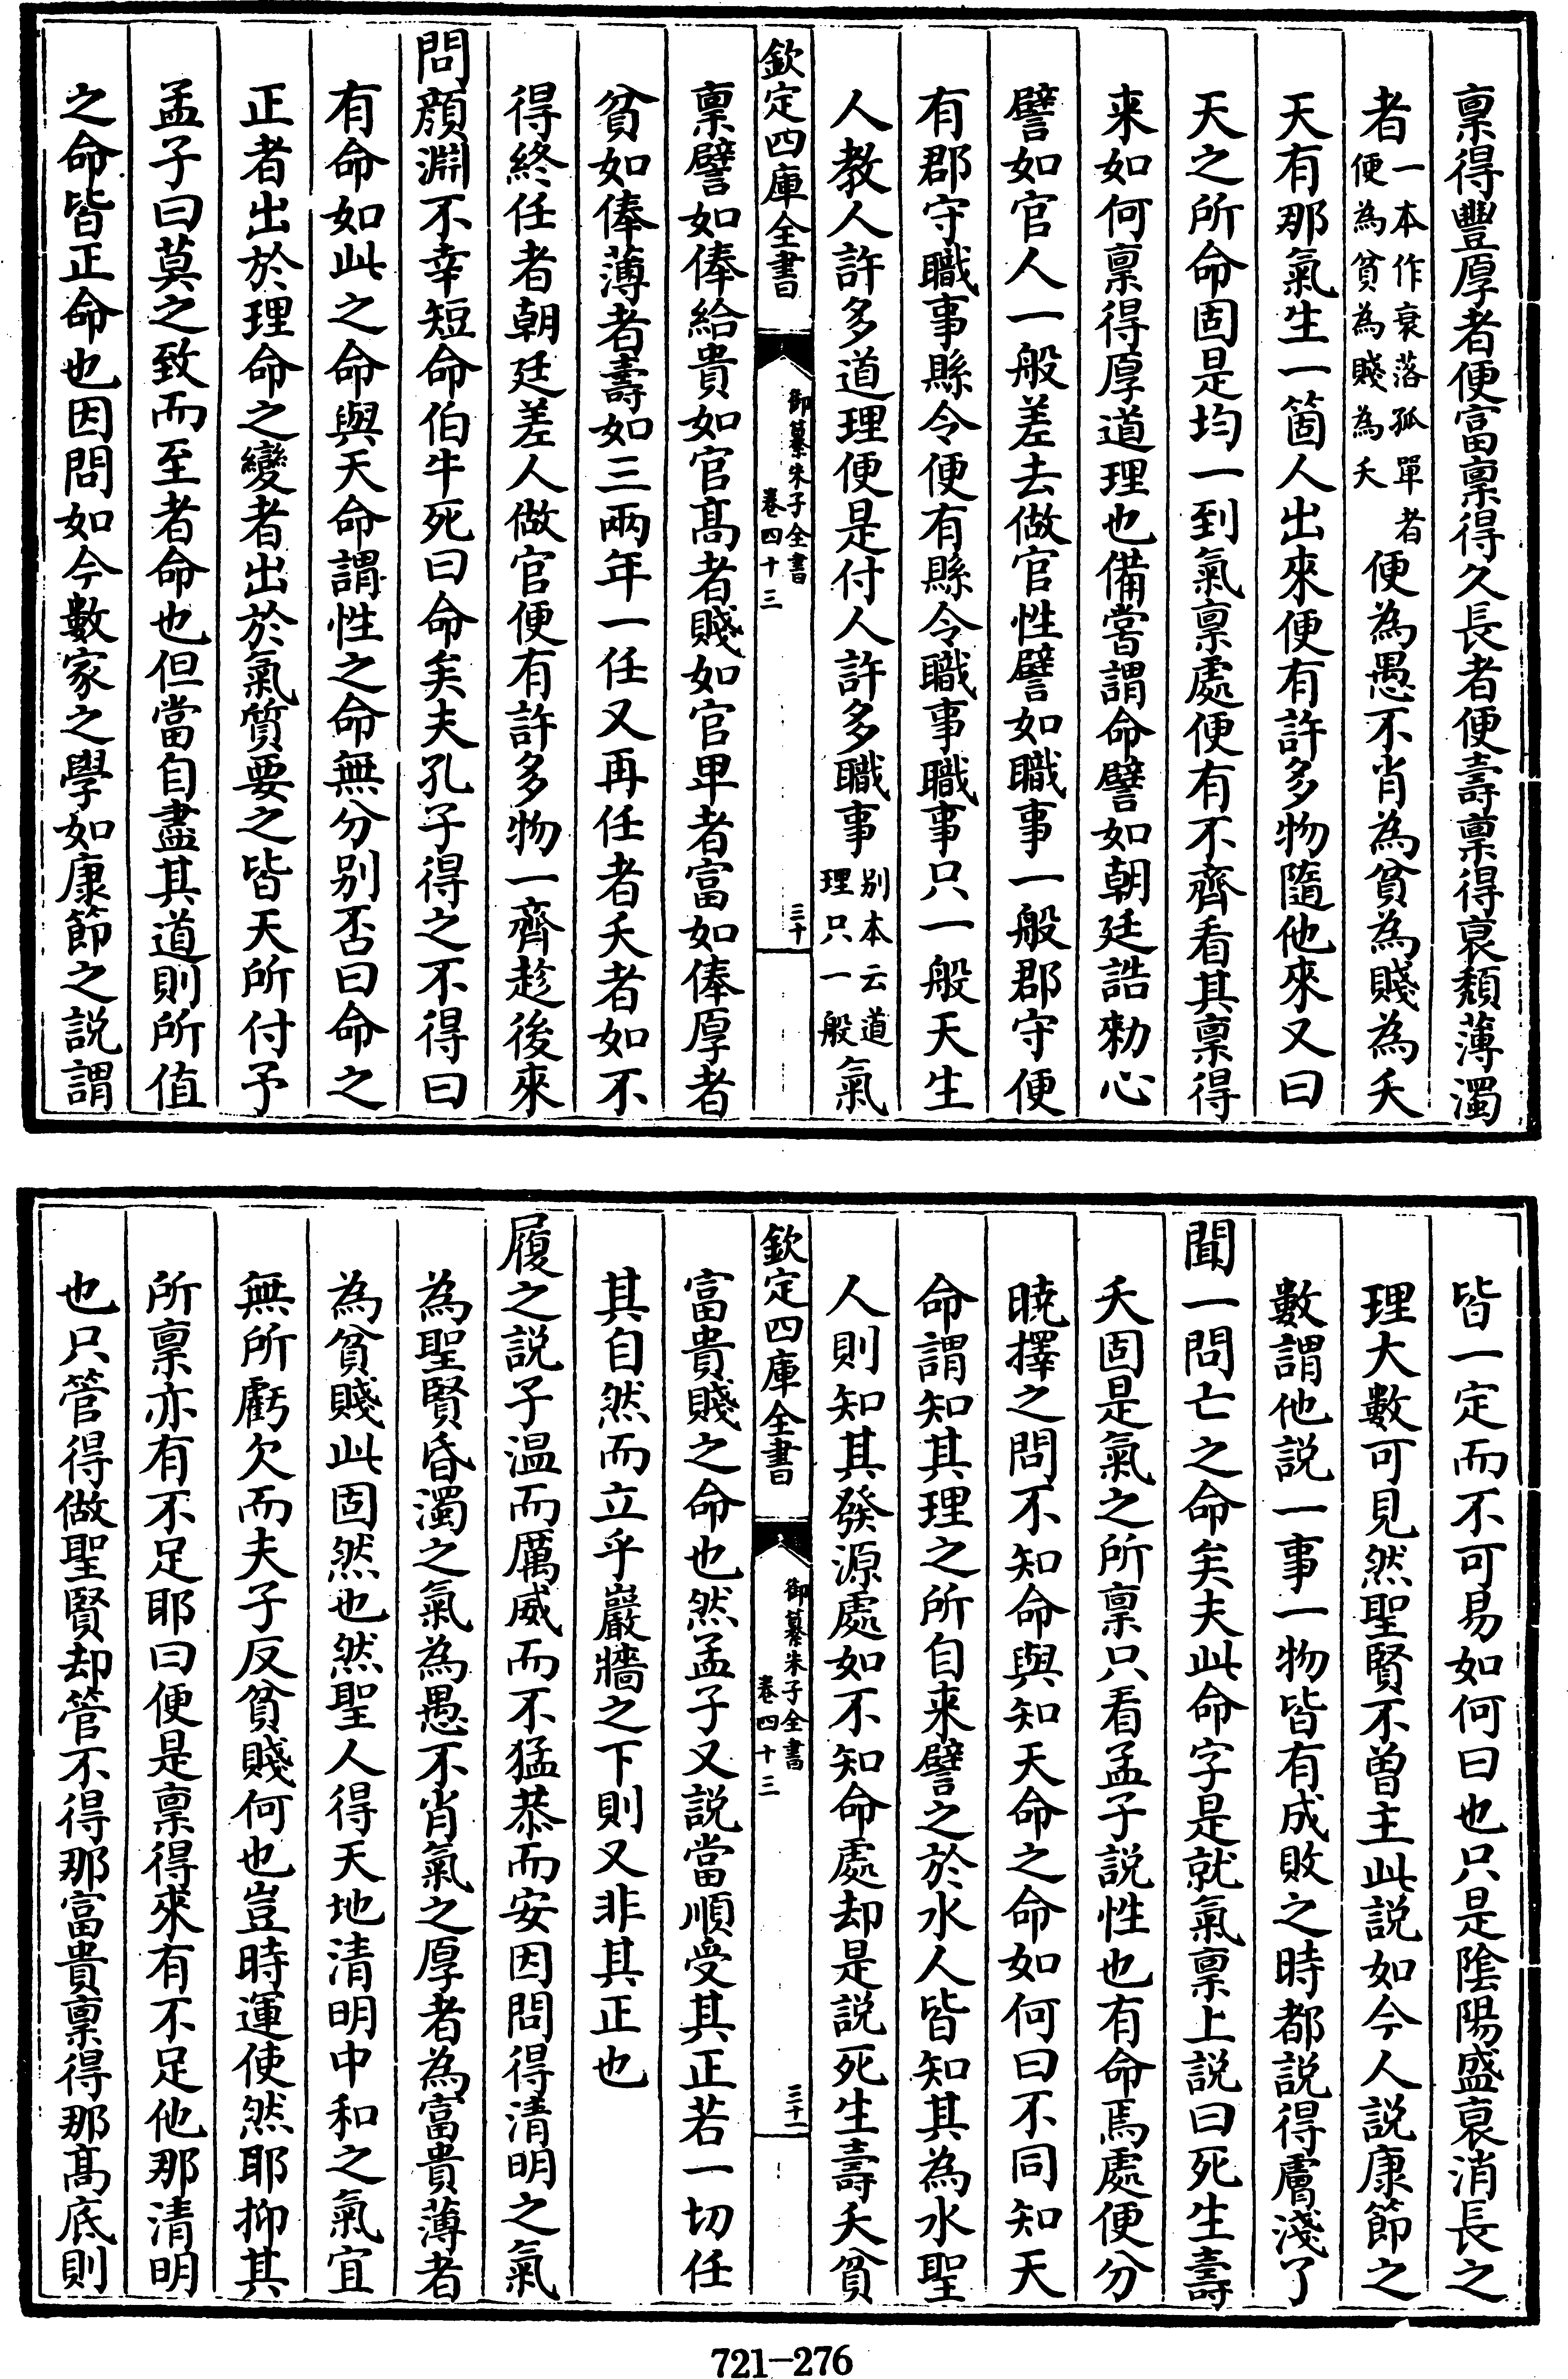 稟得豐厚者便富稟得久長者便壽稟得衰頹薄濁
者一本作衰落孤單者便為貧為賤為夭便為愚不肖為貧為賤為夭
天有那氣生一箇人出來便有許多物隨他來又曰
天之所命固是均一到氣稟處便有不齊看其稟得
来如何稟得厚道理也備嘗謂命譬如朝廷誥勑心
譬如官人一般差去做官性譬如職事一般郡守便
有郡守職事縣令便有縣令職事職事只一般天生
人教人許多道理便是付人許多職事别本云道理只一般氣
欽定四庫全書
御纂朱子全書
卷四十三
三十
稟譬如俸給貴如官髙者賤如官卑者富如俸厚者
貧如俸薄者壽如三兩年一任又再任者夭者如不
得終任者朝廷差人做官便有許多物一齊趁後來
問顔淵不幸短命伯牛死曰命矣夫孔子得之不得曰
有命如此之命與天命謂性之命無分别否曰命之
正者出於理命之變者出於氣質要之皆天所付予
孟子曰莫之致而至者命也但當自盡其道則所值
之命皆正命也因問如今數家之學如康節之説謂
皆一定而不可易如何曰也只是隂陽盛衰消長之
理大數可見然聖賢不曽主此説如今人説康節之
數謂他説一事一物皆有成敗之時都説得膚淺了
聞一問亡之命矣夫此命字是就氣稟上説曰死生壽
夭固是氣之所稟只看孟子説性也有命焉處便分
曉擇之問不知命與知天命之命如何曰不同知天
命謂知其理之所自来譬之於水人皆知其為水聖
人則知其發源處如不知命處却是説死生壽夭貧
欽定四庫全書
御纂朱子全書
卷四十三
三十一
富貴賤之命也然孟子又説當順受其正若一切任
其自然而立乎巖牆之下則又非其正也
履之説子温而厲威而不猛恭而安因問得清明之氣
為聖賢昏濁之氣為愚不肖氣之厚者為富貴薄者
為貧賤此固然也然聖人得天地清明中和之氣宜
無所虧欠而夫子反貧賤何也豈時運使然耶抑其
所稟亦有不足耶曰便是稟得來有不足他那清明
也只管得做聖賢却管不得那富貴稟得那髙底則
721-276